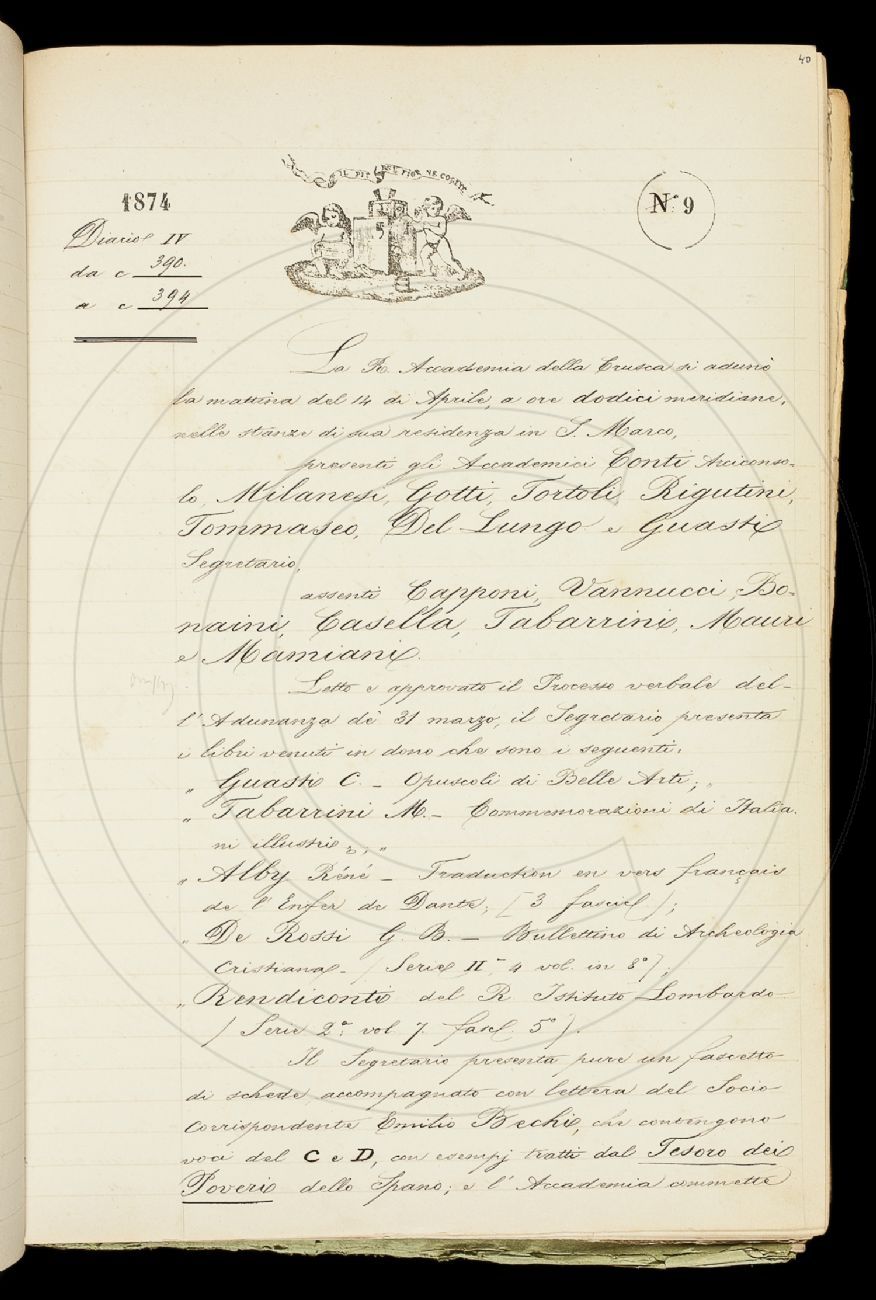 40
IL PIÙ BEL FIOR NE COGLIE
1874
N.º 9
Diario IV
da c 390.
a c 394
La R. Accademia della Crusca si adunò
la mattina del 14 di Aprile, a ore dodici meridiane,
nelle stanze di sua residenza in S. Marco,
presenti gli Accademici Conti Arciconso-
lo, Milanesi, Gotti, Tortoli, Rigutini,
Tommaseo, Del Lungo e Guasti
Segretario,
assenti Capponi, Vannucci, Bo-
naini, Casella, Tabarrini, Mauri
e Mamiani.
Letto e approvato il Processo verbale del-
l'Adunanza de' 31 marzo, il Segretario presenta
i libri venuti in dono che sono i seguenti:
" Guasti C. - Opuscoli di Belle Arti; "
" Tabarrini M. - Commemorazioni di Italia-
ni illustri; "
" Alby Réné - Traduction en vers français
de l'Enfer de Dante; (3 fascic.);
" De Rossi G. B. - Bullettino di Archeologia
Cristiana - (Serie IIª 4 vol. in 8º);
" Rendiconti del R. Istituto Lombardo
(Serie 2ª vol 7. fasc. 5º).
Il Segretario presenta pure un fascetto
di schede, accompagnato con lettera del Socio
corrispondente Emilio Bechi, che contengono
voci del C e D, con esempj tratti dal Tesoro dei
Poveri dello Spano; e l'Accademia commette